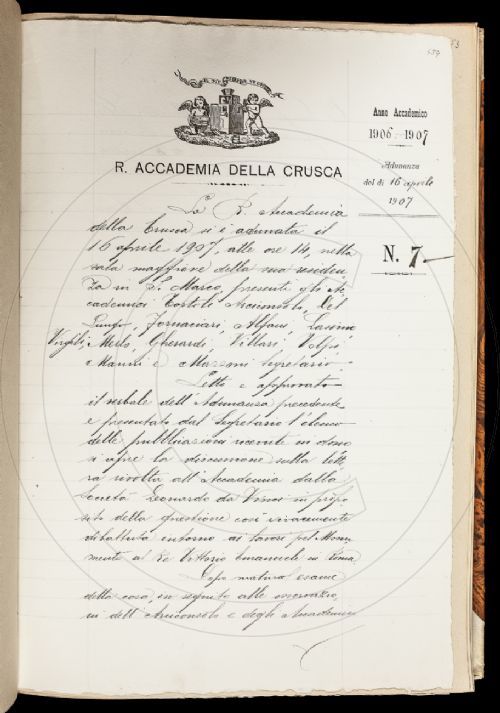 R. ACCADEMIA DELLA CRUSCA
Anno Accademico
1906-1907
Adunanza
del dì 16 aprile
1907
N. 7
La R. Accademia
della Crusca si è adunata il
16 aprile 1907, alle ore 14, nella
sala maggiore della sua residen
za in S. Marco, presenti gli Ac
cademici Tortoli Arciconsolo, Del
Lungo, Fornaciari, Alfani,
Virgili, Merlo, Gherardi, Villari, Volpi
Mannti e Mazzoni Segretario.
Letto e approvato
il verbale dell'Adunanza precedente
e presentato dal Segretario l'elenco
delle pubblicazioni ricevute in dono
si apre la discussione sulla lette
ra rivolta all'Accademia dalla
Società Leonardo da Vinci in propo
sito della questione così vivacemente
dibattuta intorno ai lavori pel Monu
mento al Re Vittorio Emanuele in Roma.
Dopo maturo esame
della cosa, in seguito alle osservazio
ni dell'Arciconsolo e degli Accademici